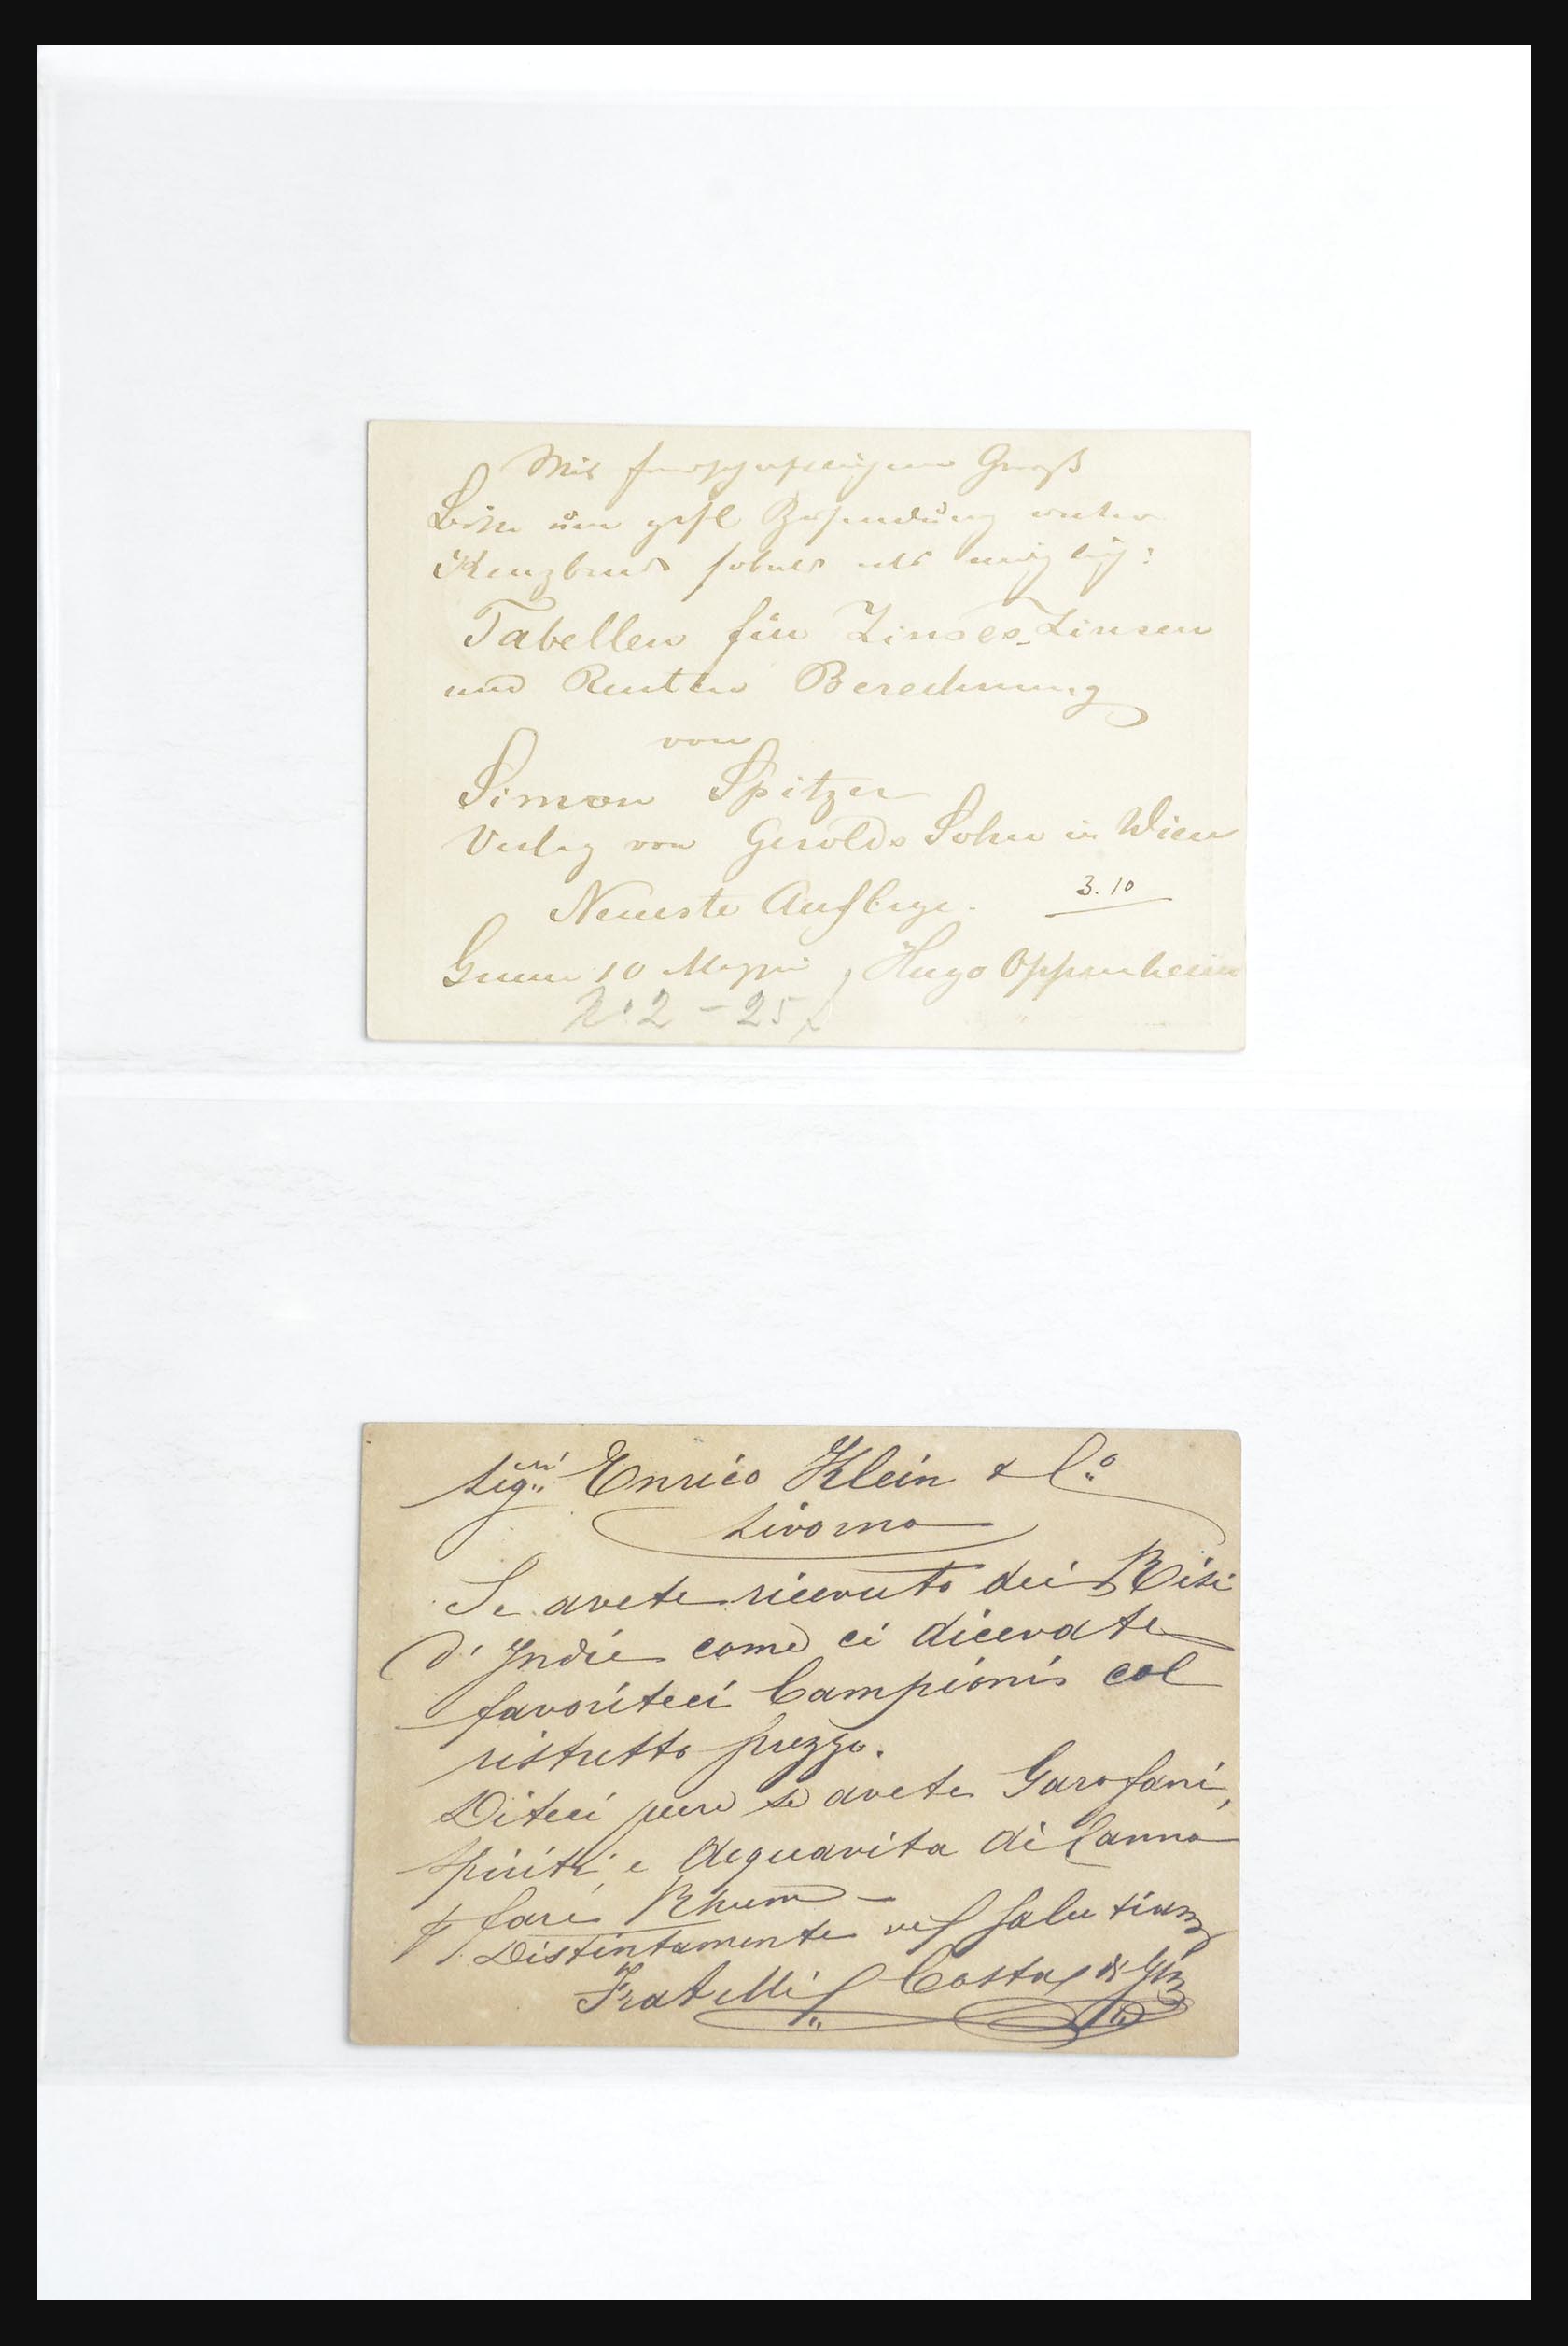 Mit Gruß
Bitte um gefl Zusendung unter
Kreuzband sobald als möglich:
Tabellen für Zinses-Zinsen
und Renten Berechnung
von
Simon Spitzer
Verlag von Gerolds Sohn in Wien
Neueste Auflage.
3.10
10 Hugo Oppenheim
2 - 25
Sigri Enrico Klein & Co
Livorno
Se avete ricevuto dei Risi
d'Indie come ci dicevate
favoriteci Campionis col
ristretto prezzo.
Diteci pure se avete Garofani,
Spiriti, e Acquavita di Canna
fare Rhum -
Distintamente vi salutiamo
Fratelli Costa di